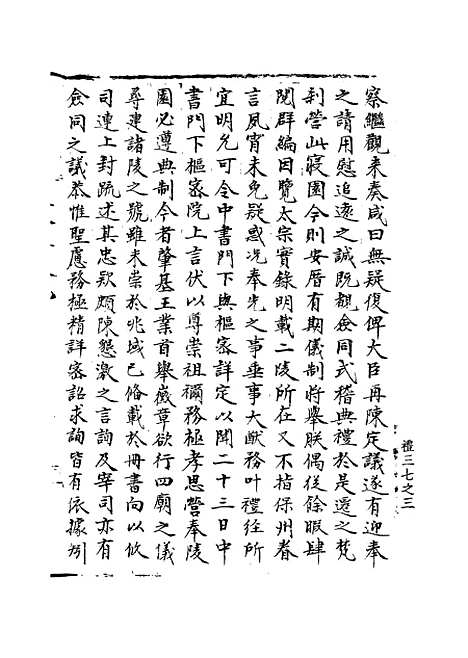 察繼觀来奏咸曰無疑復俾大臣再陳定議遂有迎奉
之請用慰追逺之誠既觀僉同式稽典禮於是還之梵
刹营此寝園今則安厝有期儀制将舉朕偶後餘暇肆
閲群編因覽太宗實錄明載二陵所在又不指保州眷
言夙宵未免疑惑况奉先之事垂事大猷務叶禮經所
宜明允可令中書門下與樞密詳定以聞二十三日中
書門下樞宻院上言伏以尊崇祖禰務極孝思營奉陵
園必遵典制今者肇基王業首舉徽章欲行四廟之儀
尋建諸陵之號雖未崇於兆域已俻載於冊書向以攸
司連上封疏述其忠欵頗陳懇激之言詢及宰司亦有
僉同之議恭惟聖慮務極精詳宻詔求詢皆有依據矧
禮三七之三